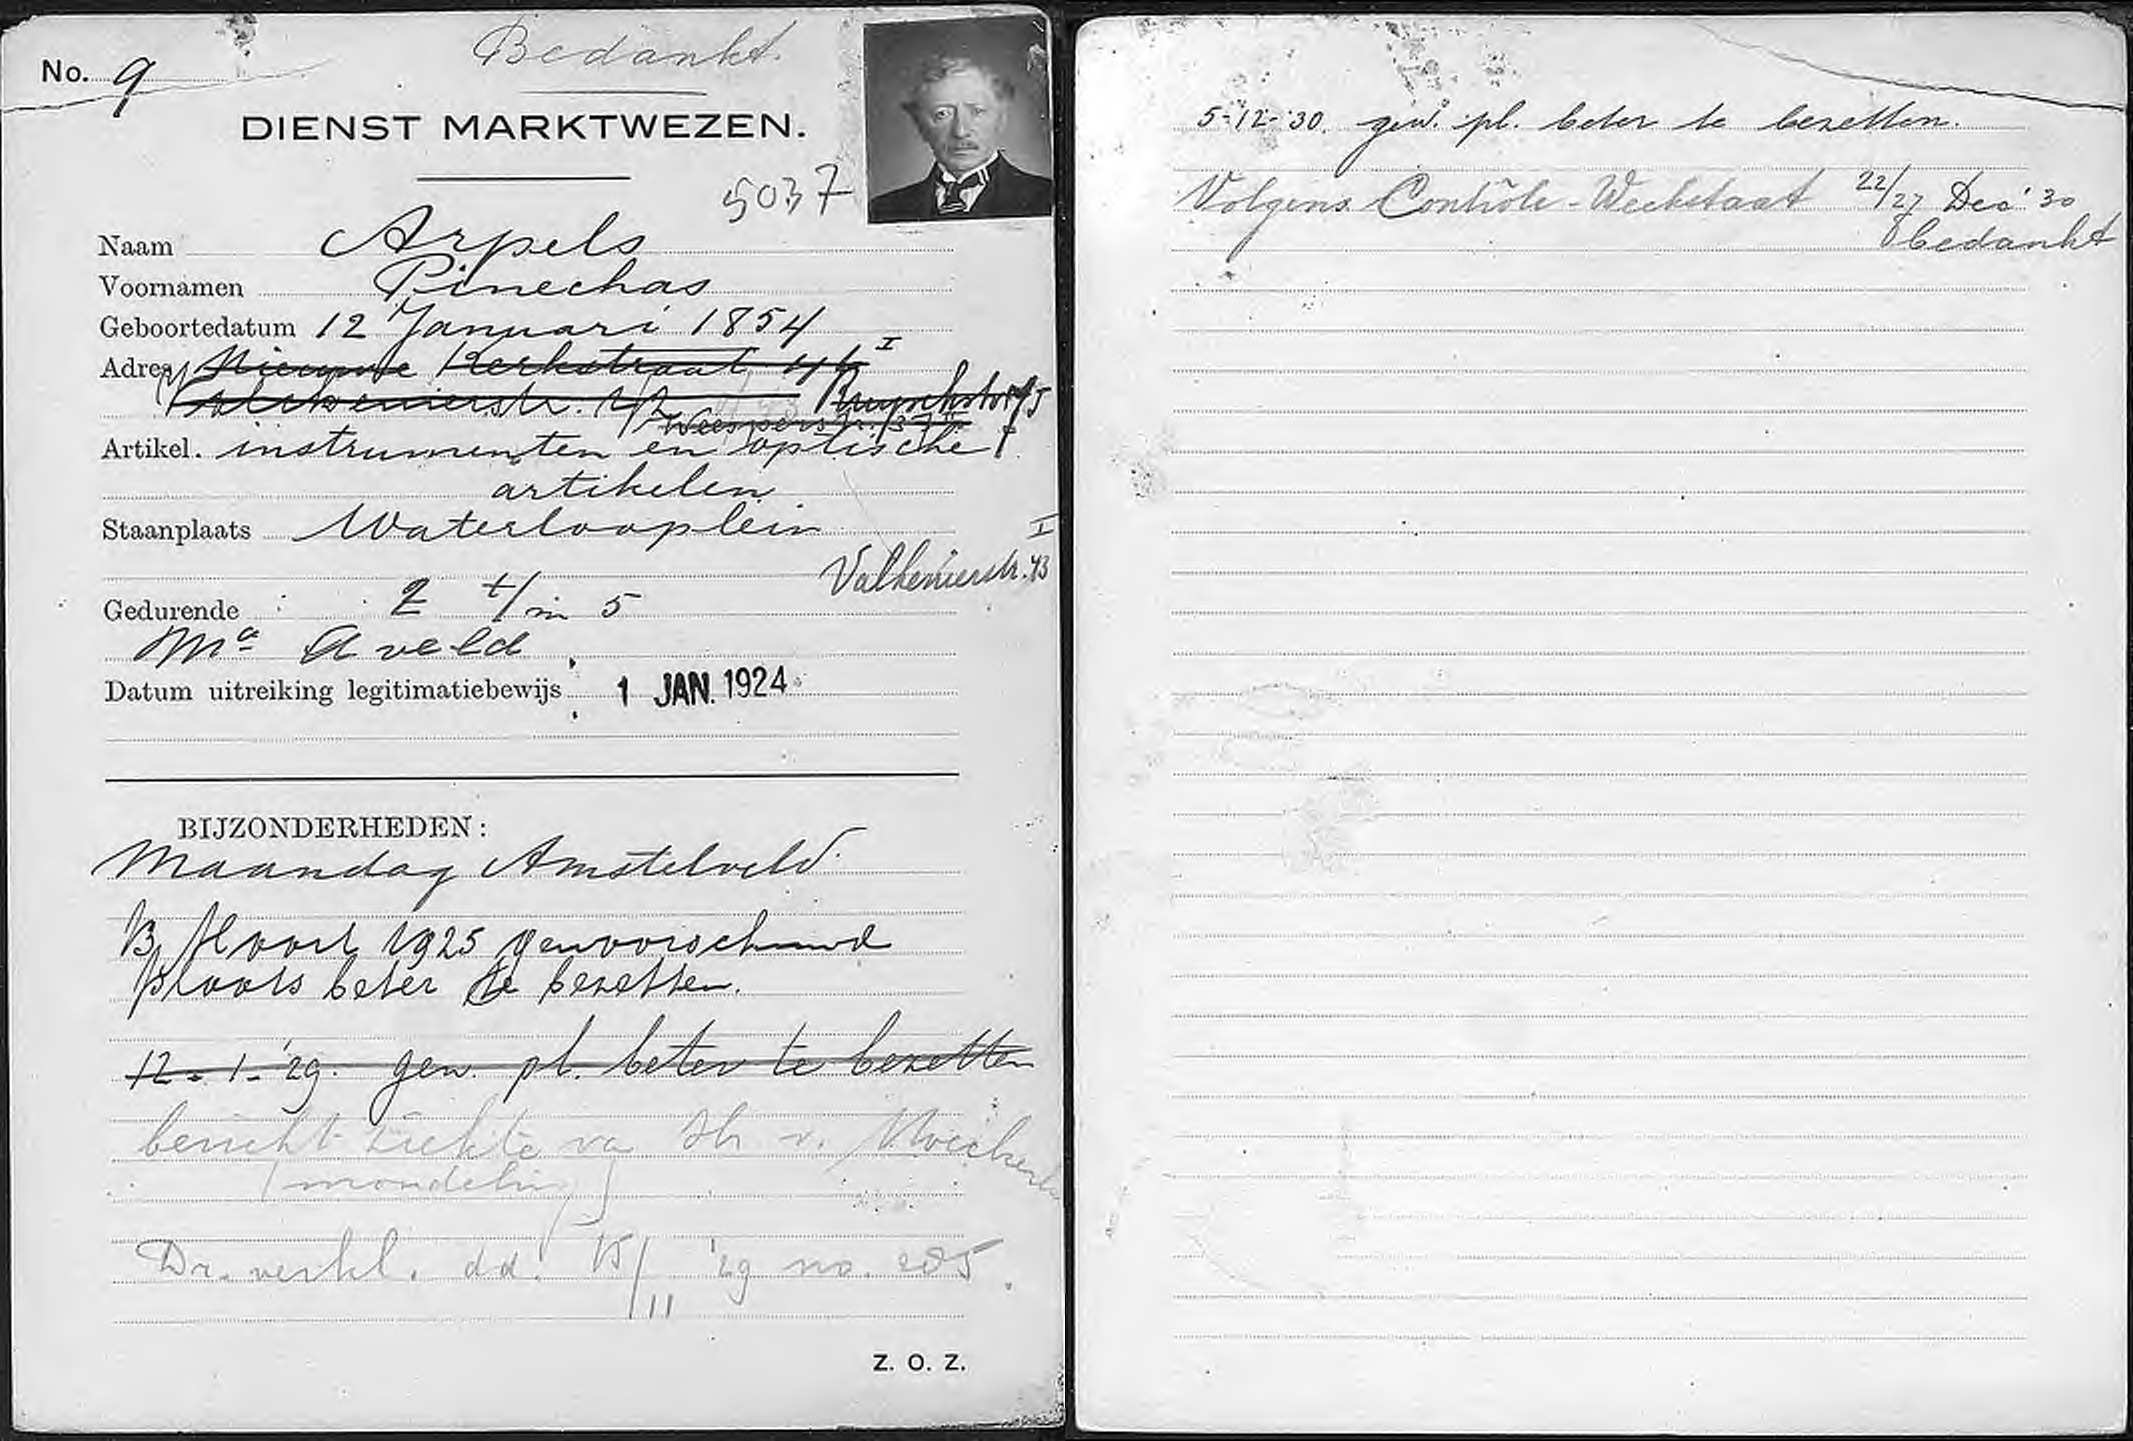 No. 9
Bedankt.
DIENST MARKTWEZEN.
5037
Naam Arpels
Voornamen Pinechas
Geboortedatum 12 Januari 1854
Adres Nieuwe Kerkstraat I
Valckenierstr.
Weesperstr.
Artikel. instrumenten en optische
artikelen
Staanplaats Waterlooplein
I
Valkenierstr. 43
Gedurende 2 t/m 5
Ma A veld
Datum uitreiking legitimatiebewijs 1 JAN. 1924
BIJZONDERHEDEN:
Maandag Amstelveld
Maart 1925 gewaarschuwd
plaats beter te bezetten.
12-1-'29. gew. pl. beter te bezetten
bericht ziekte
(mondeling)
Dr. verkl. dd. 15/11 '29 no. 205.
Z. O. Z.
5-12-'30. gew. pl. beter te bezetten.
Volgens Contrôle-Weekstaat 22/27 Dec '30
bedankt